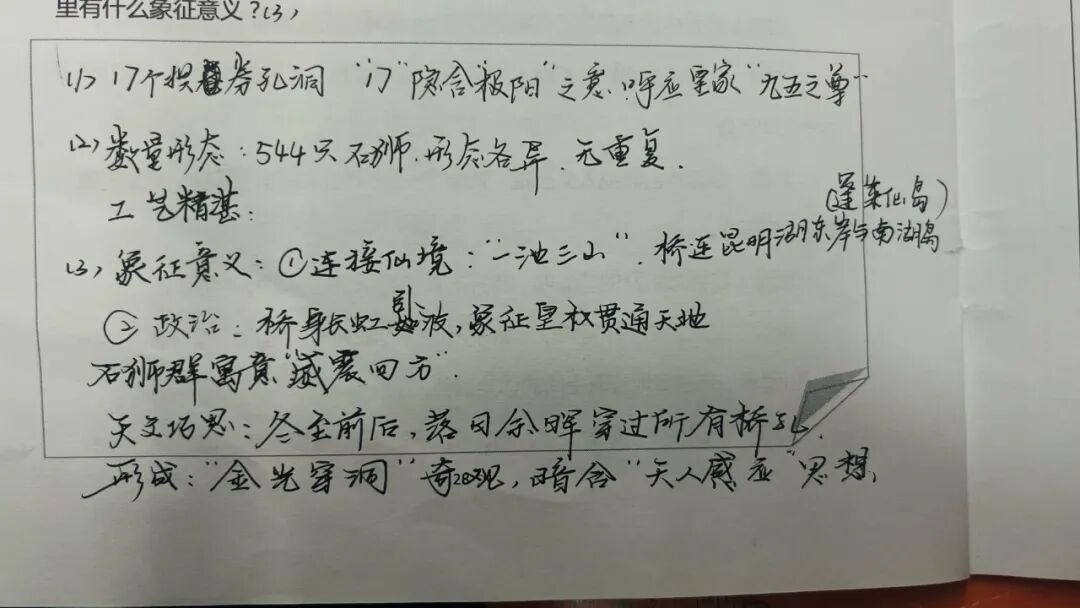 里有什么象征意义？(3)
(1) 17个拱券孔洞 "17"隐含"极阳"之意.呼应皇家"九五之尊"
(2) 数量形态：544只石狮.形态各异.无重复.
工艺精湛：
(蓬莱仙岛)
(3) 象征意义：①连接仙境："一池三山".桥连昆明湖东岸与南湖岛
② 政治：桥身长虹卧波，象征皇权贯通天地
石狮群寓意"威震四方".
天文巧思：冬至前后，落日余晖穿过所有桥孔.
形成："金光穿洞"奇观，暗含"天人感应"思想.